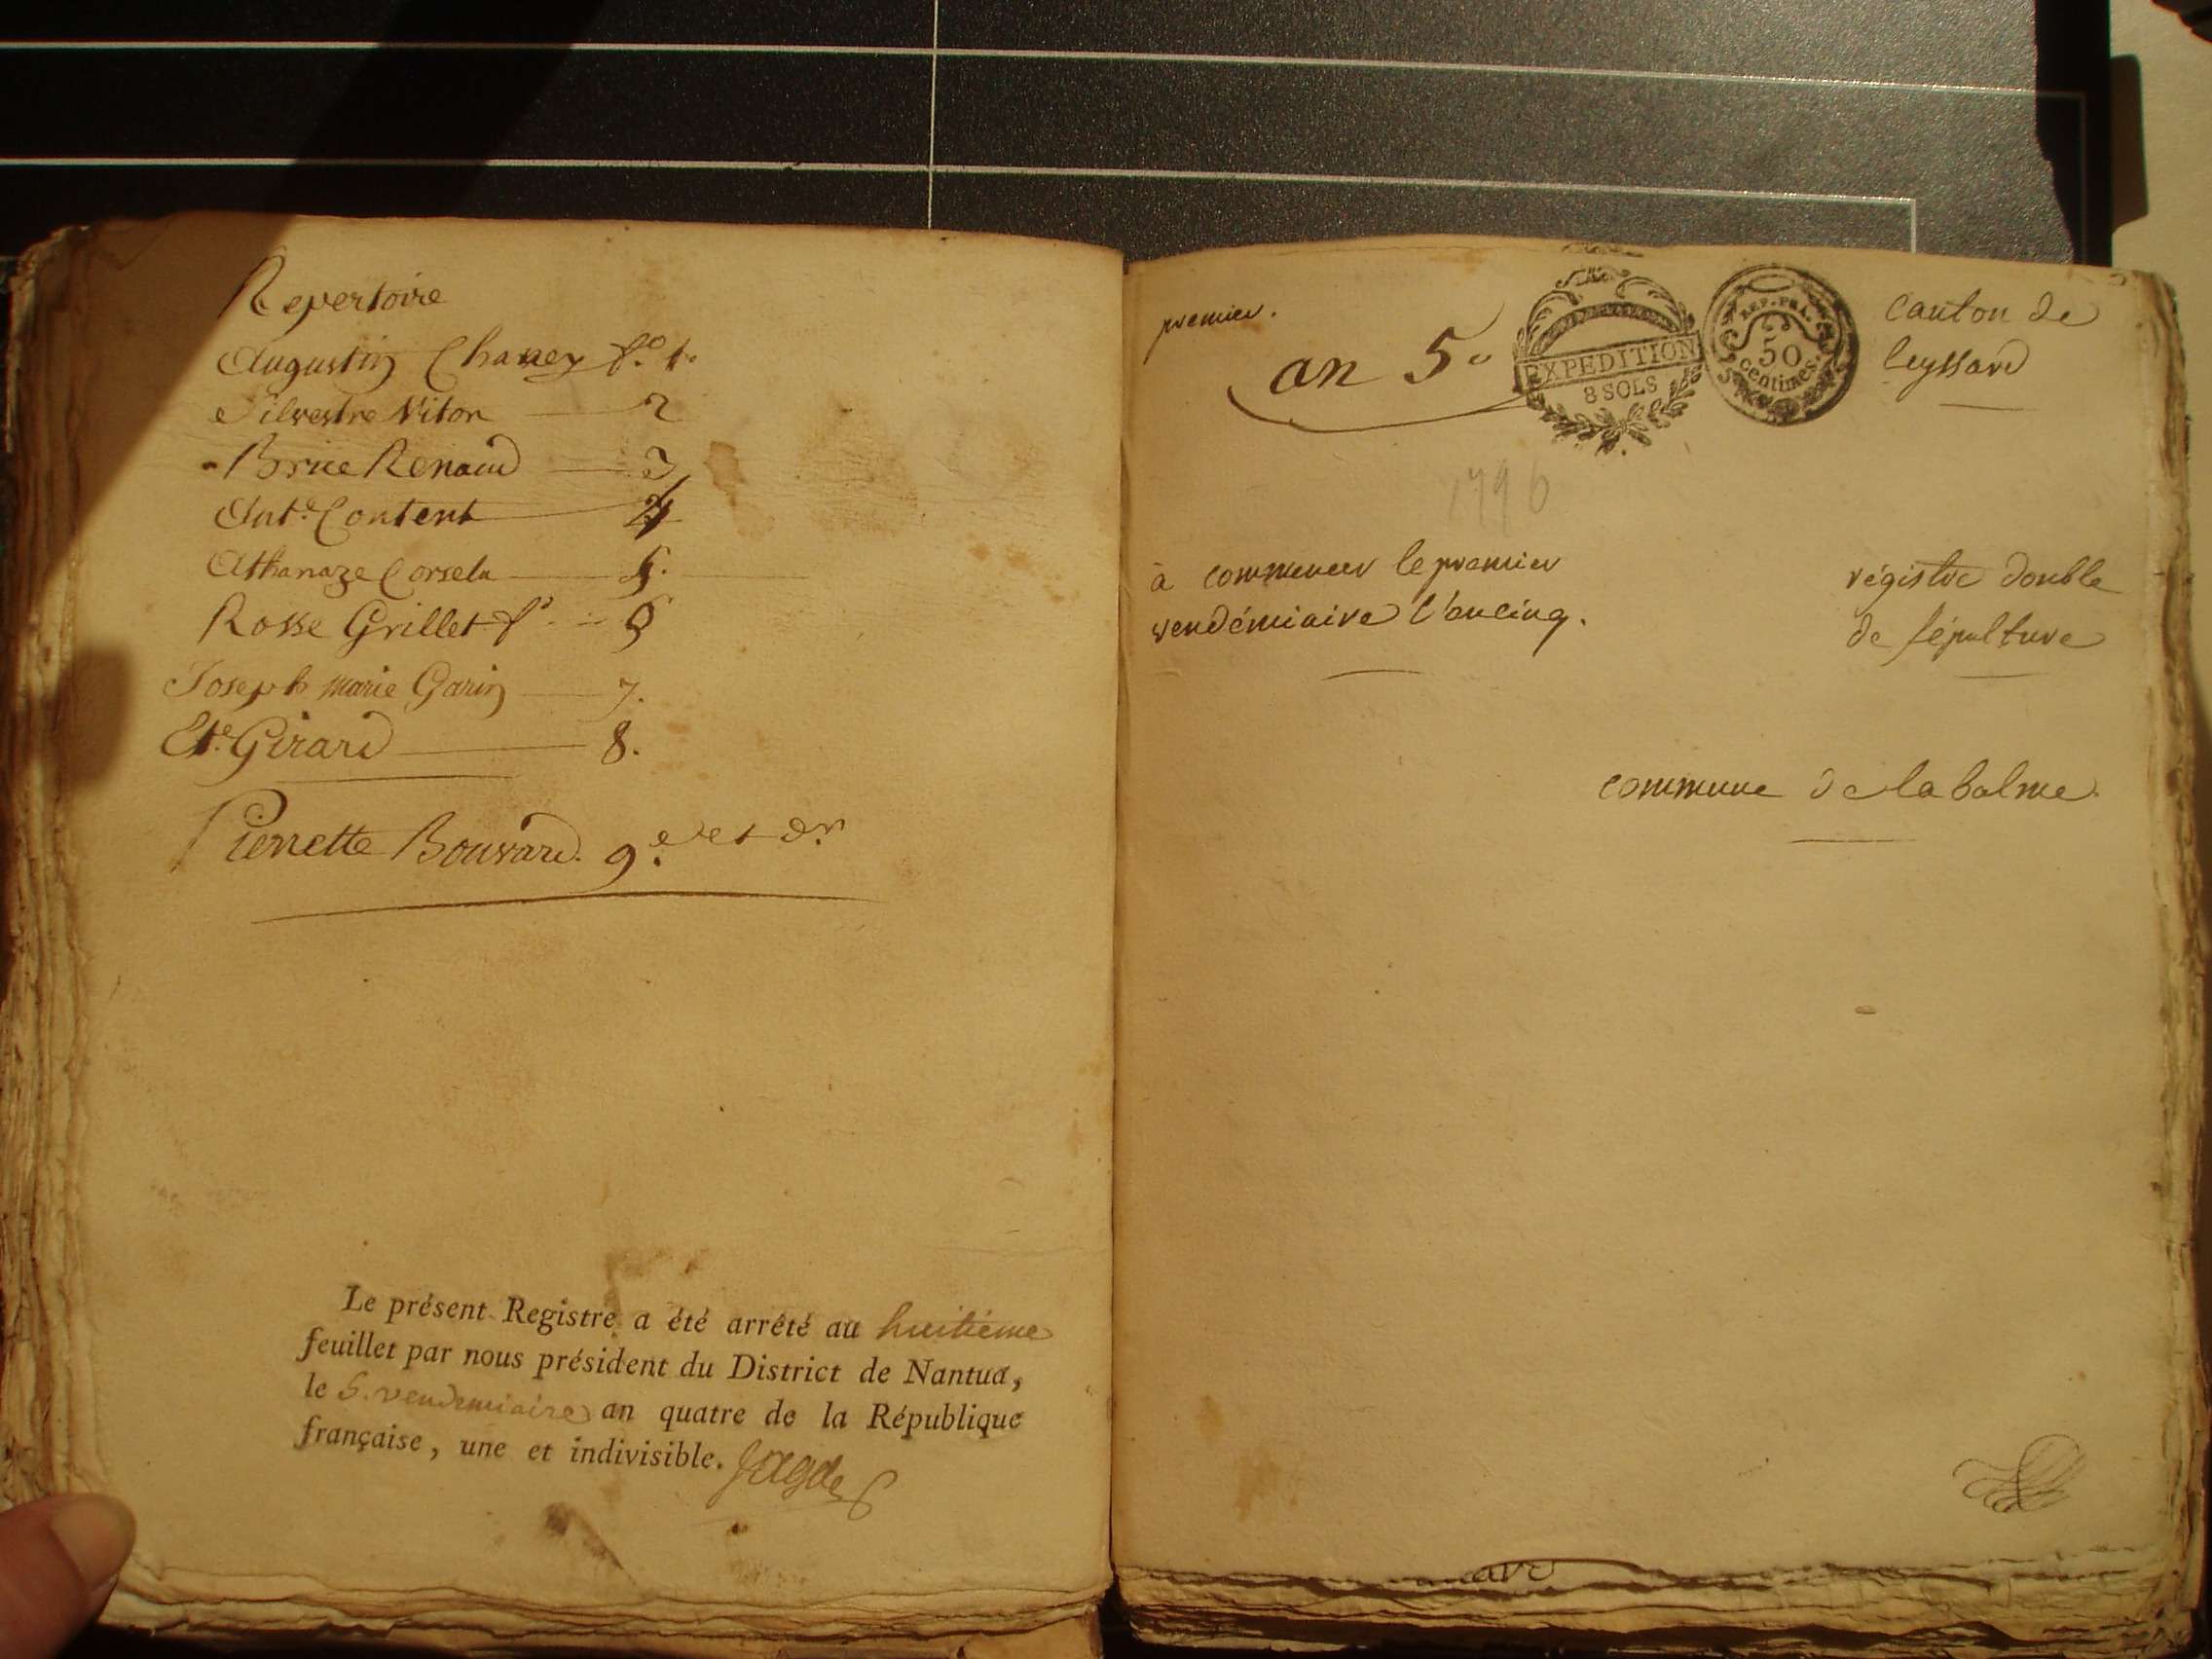 Repertoire
Augustin Chanex f.o 1.
Silvestre Viton 2
Brice Renaud 3
Ant.e Content 4
Athanaze Corselu 5.
Rosse Grillet f.o 6
Joseph marie Garin 7.
Et.e Girard 8.
Pierrette Bouvard. 9.e et d.r
Le présent Registre a été arrêté au huitième
feuillet par nous président du District de Nantua,
le 5. vendemiaire an quatre de la République
française, une et indivisible.
premier.
an 5.e
EXPEDITION
8 SOLS
REP. FRA.
50
centimes.
canton de
leyssard
1796
à commencer le premier
vendémiaire l'an cinq.
régistre double
de sépulture
commune de la balme.